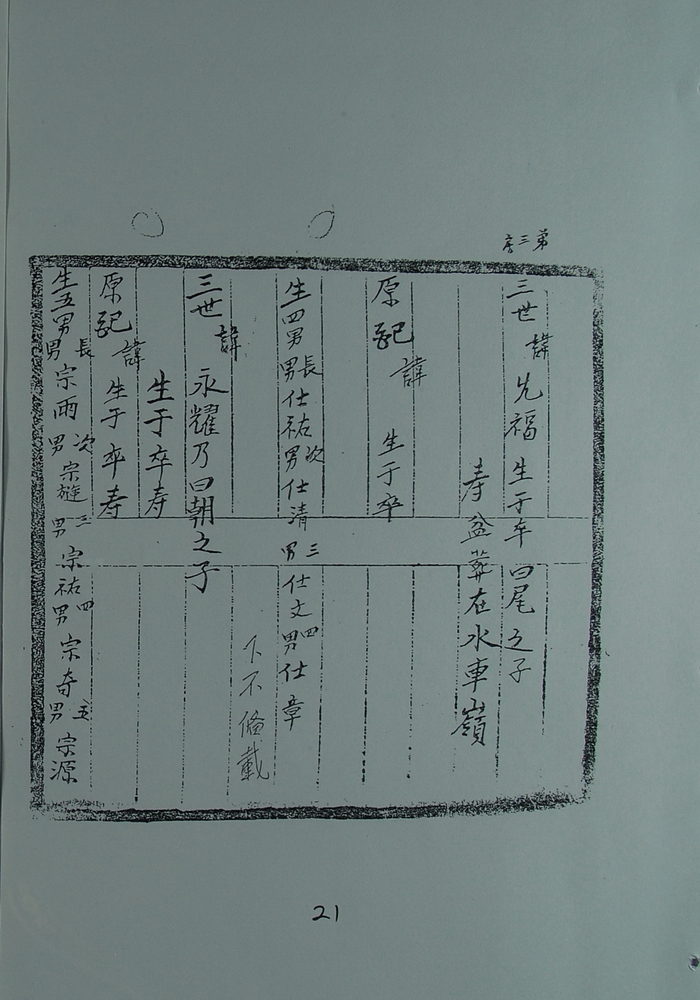 第三房
三世 諱 先福 生于卒 曰尾之子
寿 盆葬在水車嶺
原配 諱 生于卒
生四男 長男仕祐 次男仕清 三男仕文 四男仕章
下不俻載
三世 諱 永耀乃曰朝之子
生于卒寿
原配 諱 生于卒寿
生五男 長男宗雨 次男宗 三男宗祐 四男宗奇 五男宗源
21